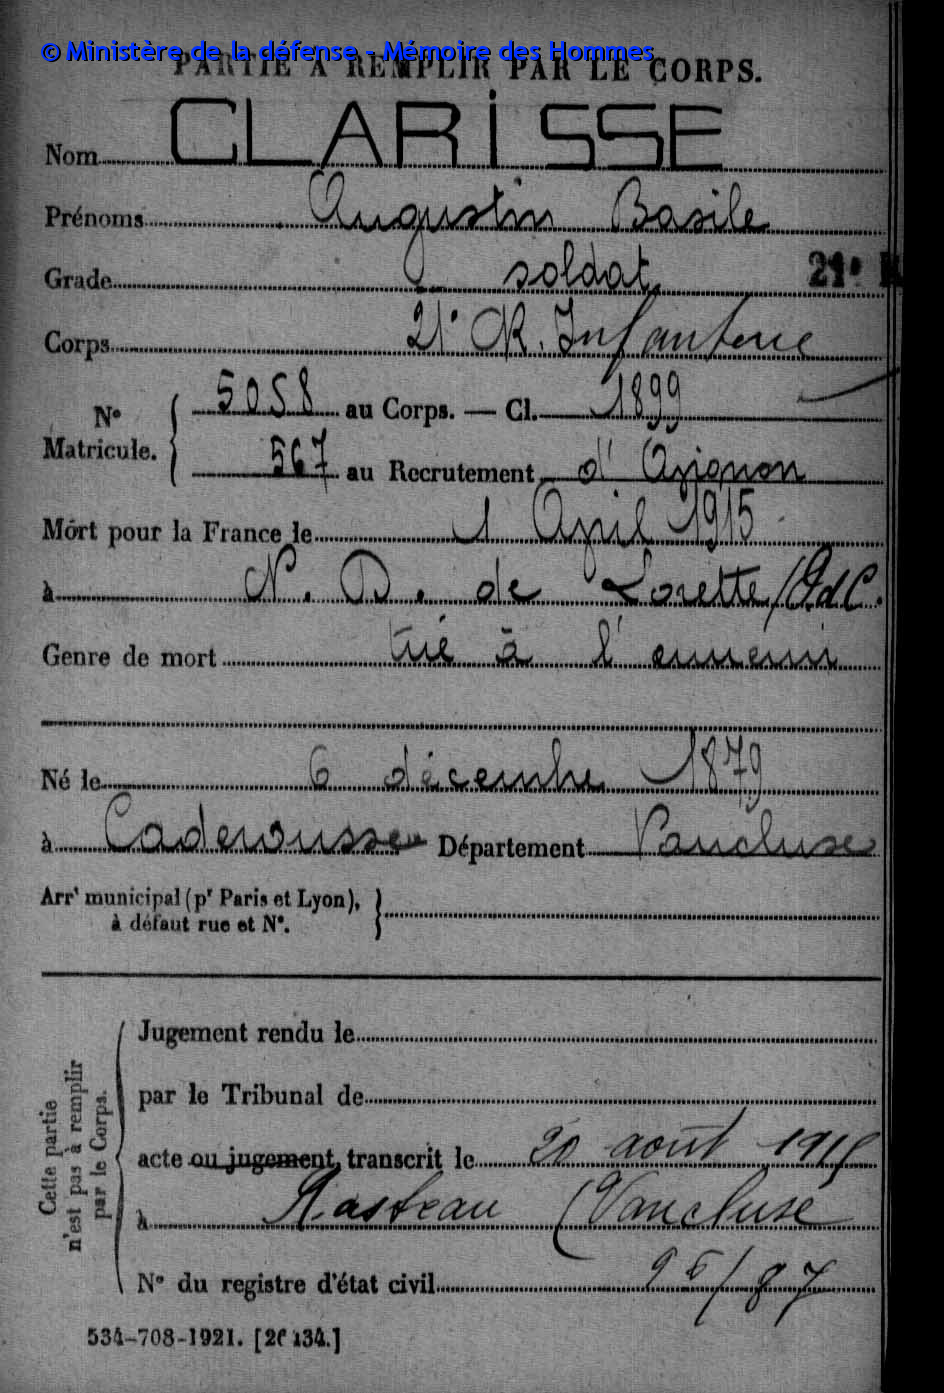 © Ministère de la défense - Mémoire des Hommes
PARTIE À REMPLIR PAR LE CORPS.
Nom CLARISSE
Prénoms Augustin Basile
Grade 2e soldat 21e
Corps 21e R. Infanterie
N° Matricule. { 5058 au Corps. — Cl. 1899
567 au Recrutement d'Avignon
Mort pour la France le 1 Avril 1915
à N. D. de Lorette (P.d.C.
Genre de mort tué à l'ennemi
Né le 6 décembre 1879
à Caderousse Département Vaucluse
Arrt municipal (pr Paris et Lyon), }
à défaut rue et N°.
Cette partie n'est pas à remplir par le Corps. {
Jugement rendu le
par le Tribunal de
acte ou jugement transcrit le 20 août 1915
à Rasteau (Vaucluse
N° du registre d'état civil 95/87
534-708-1921. [26434.]